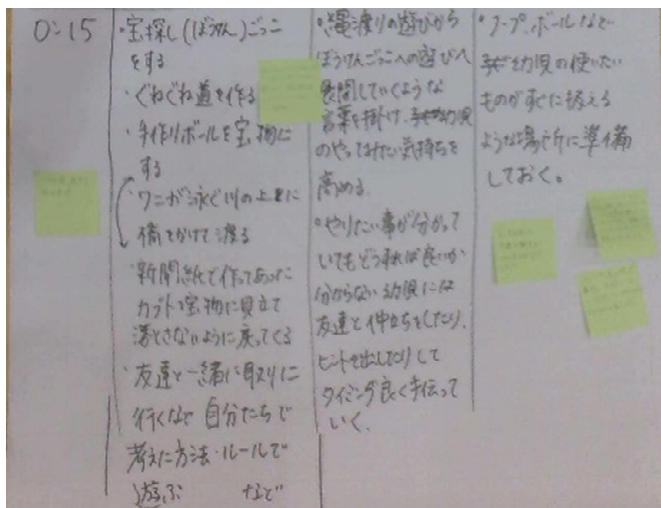 0:15
・宝探し(ぼうけん)ごっこ
をする
・ぐねぐね道を作る
・手作りボールを宝物に
する
・ワニが泳ぐ川の上に
橋をかけて渡る
・新聞紙で作ってあった
カブトを宝物に見立て
落とさないように戻ってくる
・友達と一緒に取りに
行くなど自分たちで
考えた方法・ルールで
遊ぶ など
・縄渡りの遊びから
ぼうけんごっこへの遊びへ
展開していくような
言葉を掛け、幼児
のやってみたい気持ちを
高める。
・やりたい事が分かって
いてもどうすれば良いか
分からない幼児には
友達と仲立ちをしたり、
ヒントを出したりして
タイミング良く手伝って
いく。
・フープ、ボールなど
幼児の使いたい
ものがすぐに扱える
ような場所に準備
しておく。